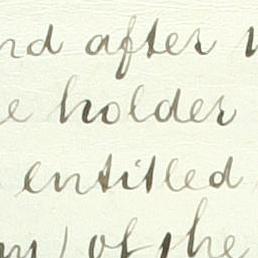 nd after
e holder
entitled
of the